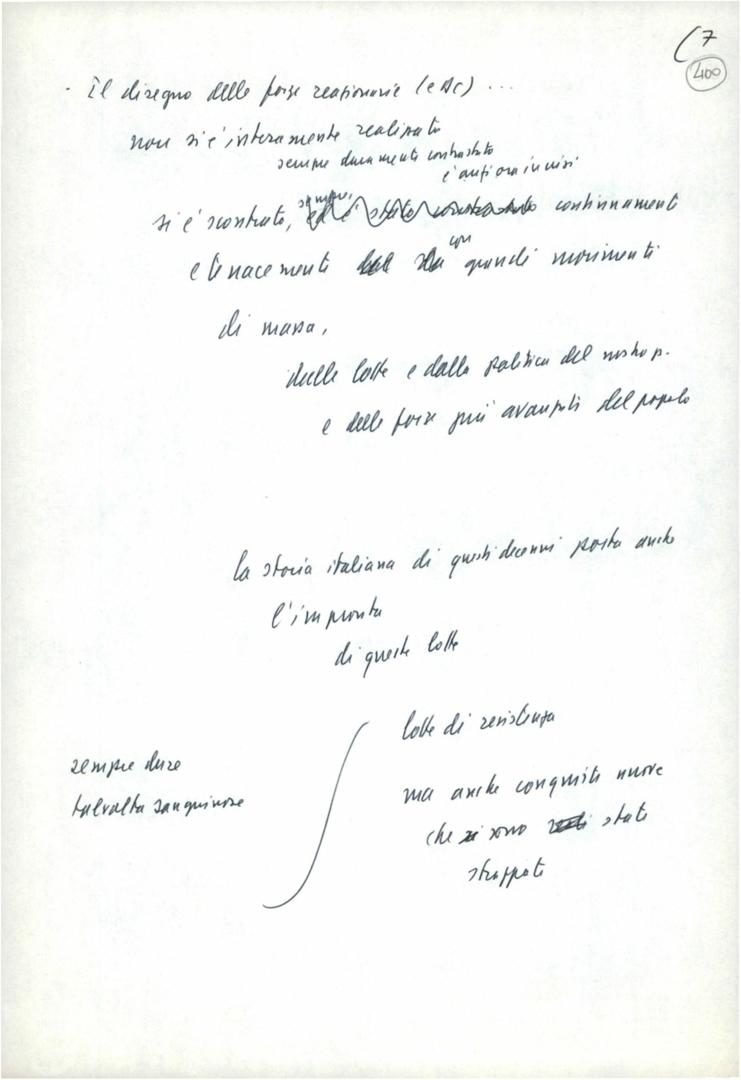 (7
400
- Il disegno delle forze reazionarie (e DC) ...
non si è interamente realizzato
sempre duramente contrastato
è anzi ora in crisi
sempre,
si è scontrato, ed è stato contrastato continuamente
e tenacemente con grandi movimenti
di massa,
dalle lotte e dalla politica del nostro p.
e delle forze più avanzate del popolo
la storia italiana di questi decenni porta anche
l'impronta
di queste lotte
lotte di resistenza
sempre dure
talvolta sanguinose
ma anche conquiste nuove
che si sono state
strappate